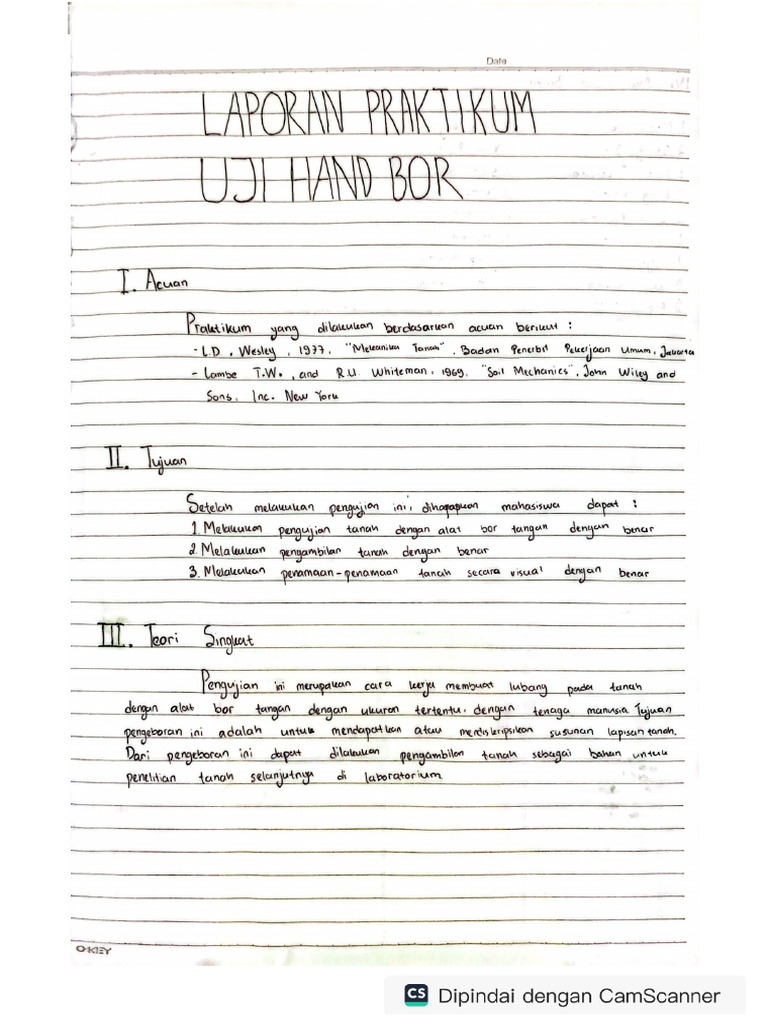 Date
LAPORAN PRAKTIKUM
UJI HAND BOR
I. Acuan
Praktikum yang dilakukan berdasarkan acuan berikut :
- L.D. Wesley, 1977, "Mekanika Tanah", Badan Penerbit Pekerjaan Umum, Jakarta
- Lambe T.W., and R.U. Whiteman, 1969, "Soil Mechanics", John Wiley and
Sons, Inc. New York
II. Tujuan
Setelah melakukan pengujian ini, diharapkan mahasiswa dapat :
1. Melakukan pengujian tanah dengan alat bor tangan dengan benar
2. Melakukan pengambilan tanah dengan benar
3. Melakukan penamaan-penamaan tanah secara visual dengan benar
III. Teori Singkat
Pengujian ini merupakan cara kerja membuat lubang pada tanah
dengan alat bor tangan dengan ukuran tertentu, dengan tenaga manusia Tujuan
pengeboran ini adalah untuk mendapatkan atau mendiskripsikan susunan lapisan tanah.
Dari pengeboran ini dapat dilakukan pengambilan tanah sebagai bahan untuk
penelitian tanah selanjutnya di laboratorium
OKEY
CS Dipindai dengan CamScanner